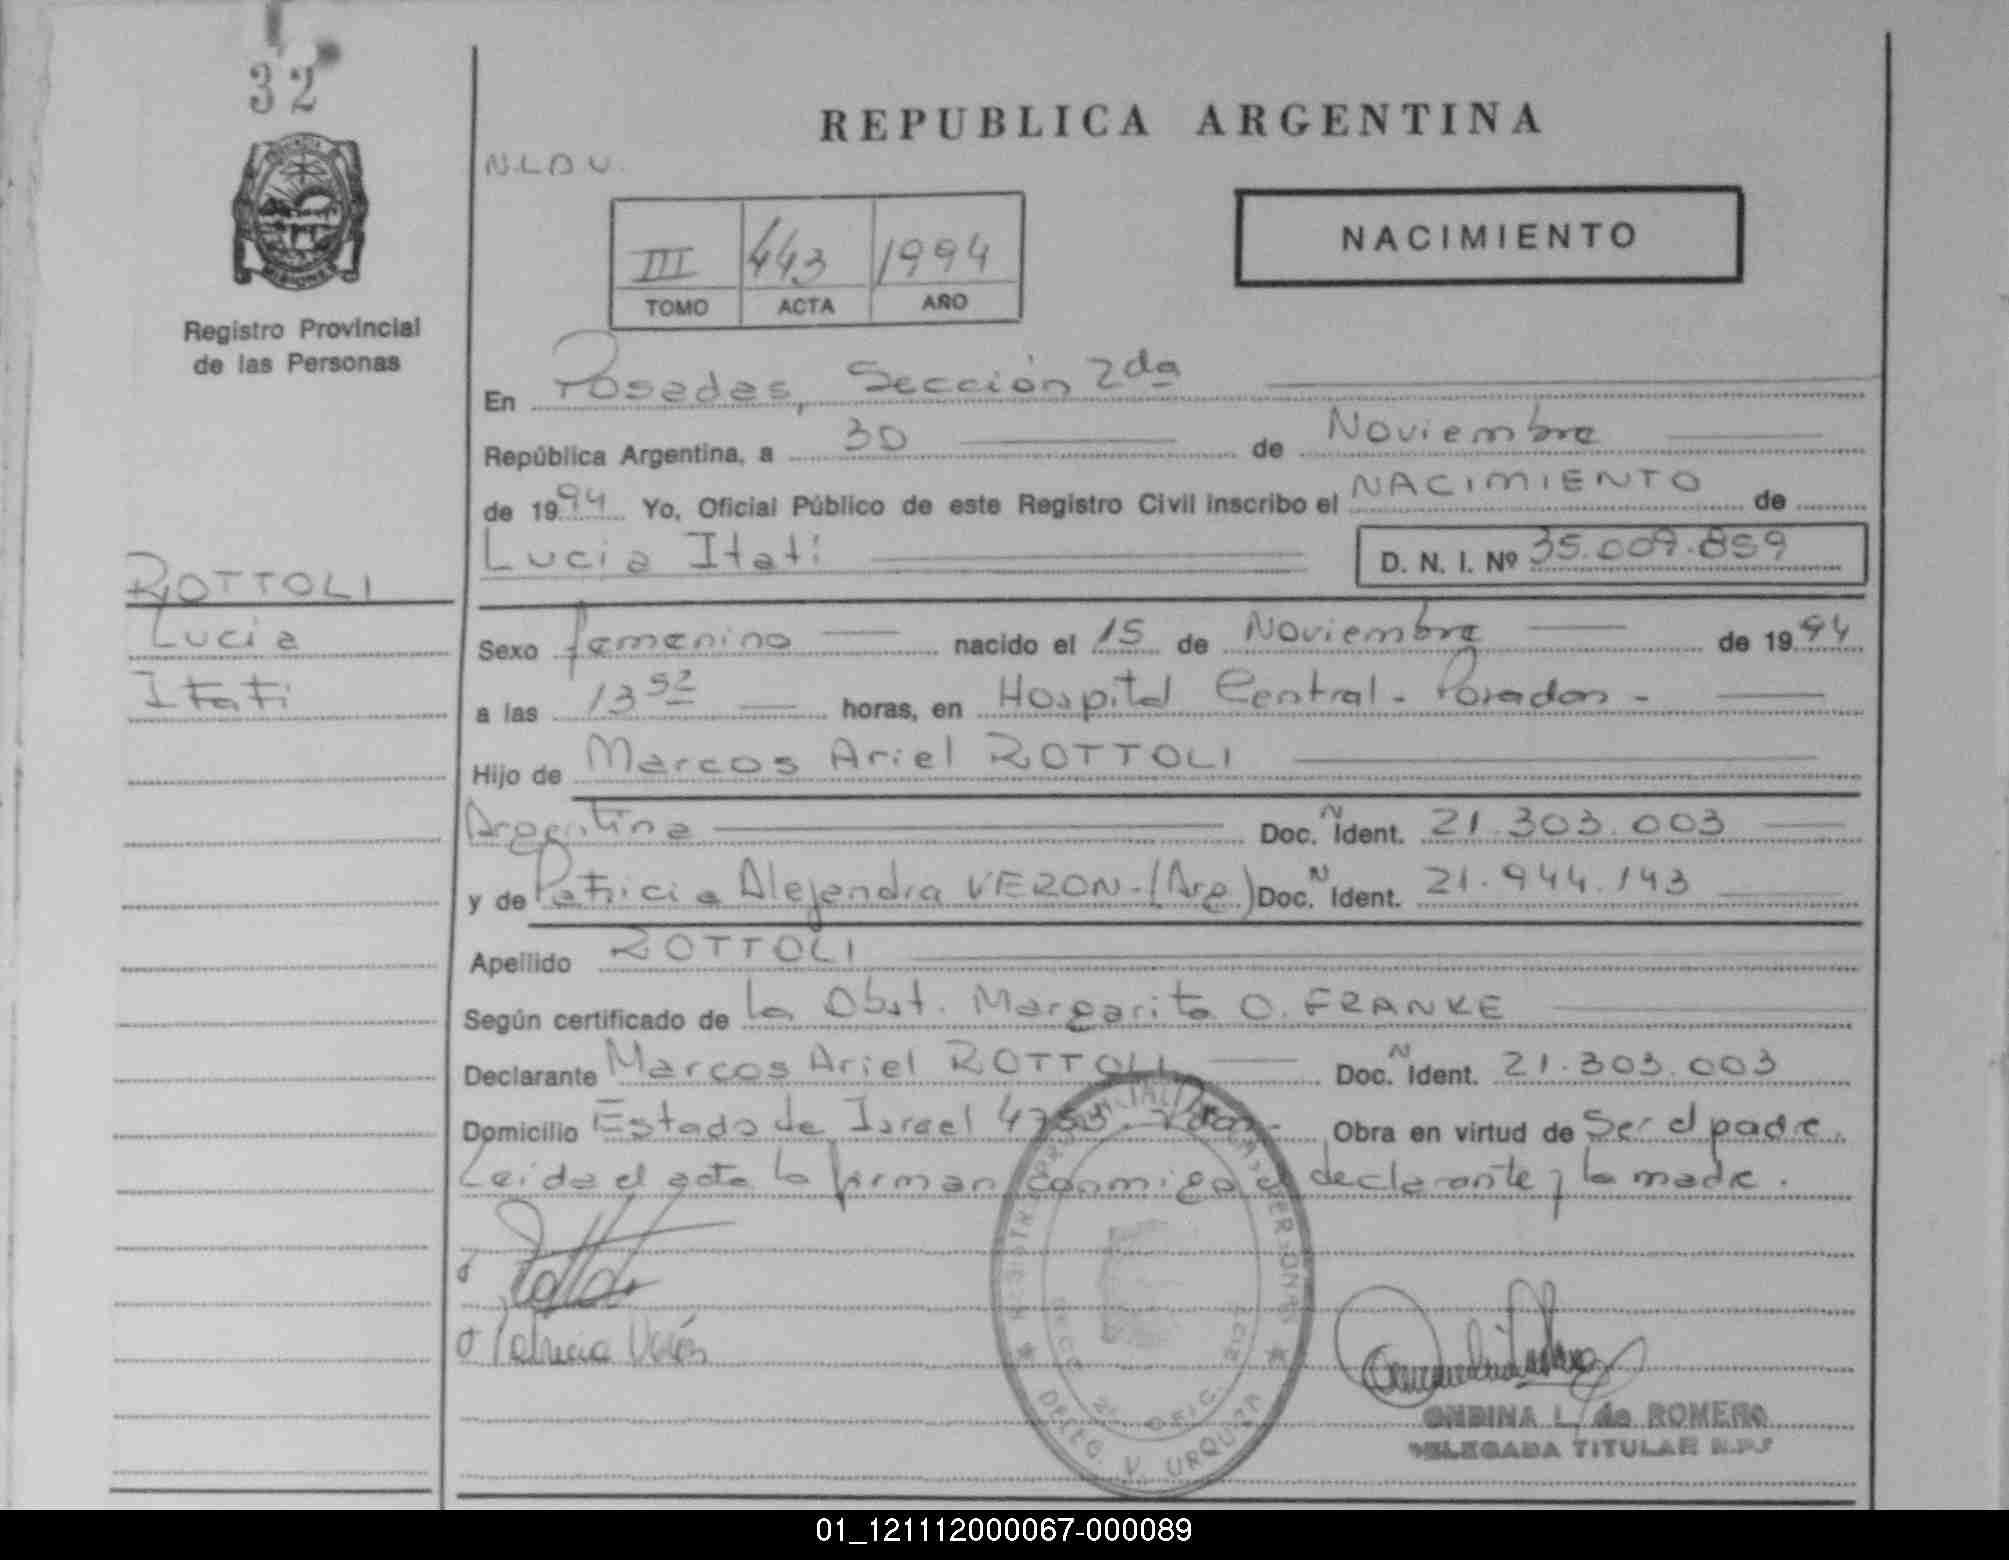 32
REPUBLICA ARGENTINA
N.L.D U.
NACIMIENTO
III 443 1994
TOMO ACTA AÑO
Registro Provincial
de las Personas
En Posadas, Sección 2da
República Argentina, a 30 de Noviembre
de 1994 Yo, Oficial Público de este Registro Civil inscribo el NACIMIENTO de
Lucia Itati D. N. I. Nº 35.009.859
ROTTOLI
Lucia
Itati
Sexo femenino nacido el 15 de Noviembre de 1994
a las 13 52 horas, en Hospital Central - Posadas -
Hijo de Marcos Ariel ROTTOLI
Argentina Doc. N Ident. 21.303.003
y de Patricia Alejandra VERON - (Arg.) Doc. N Ident. 21.944.143
Apellido ROTTOLI
Según certificado de la Obst. Margarita O. FRANKE
Declarante Marcos Ariel ROTTOLI Doc. N Ident. 21.303.003
Domicilio Estado de Israel 4753. Obra en virtud de Ser el padre.
Leida el acta la firman conmigo el declarante y la madre.
Patricia Verón
REGISTRO PROVINCIAL DE LAS PERSONAS
SECC 2ª
DELEG. V. URQUIZA
ONDINA L. de ROMERO
DELEGADA TITULAR R.P.P
01_121112000067-000089